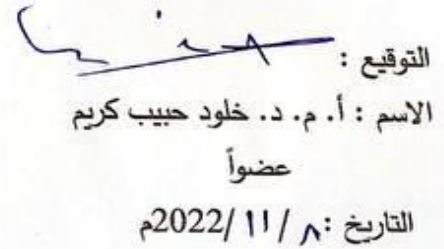 التوقيع :
الاسم : أ. م. د. خلود حبيب كريم
عضواً
التاريخ : ٨ / 11 / 2022م